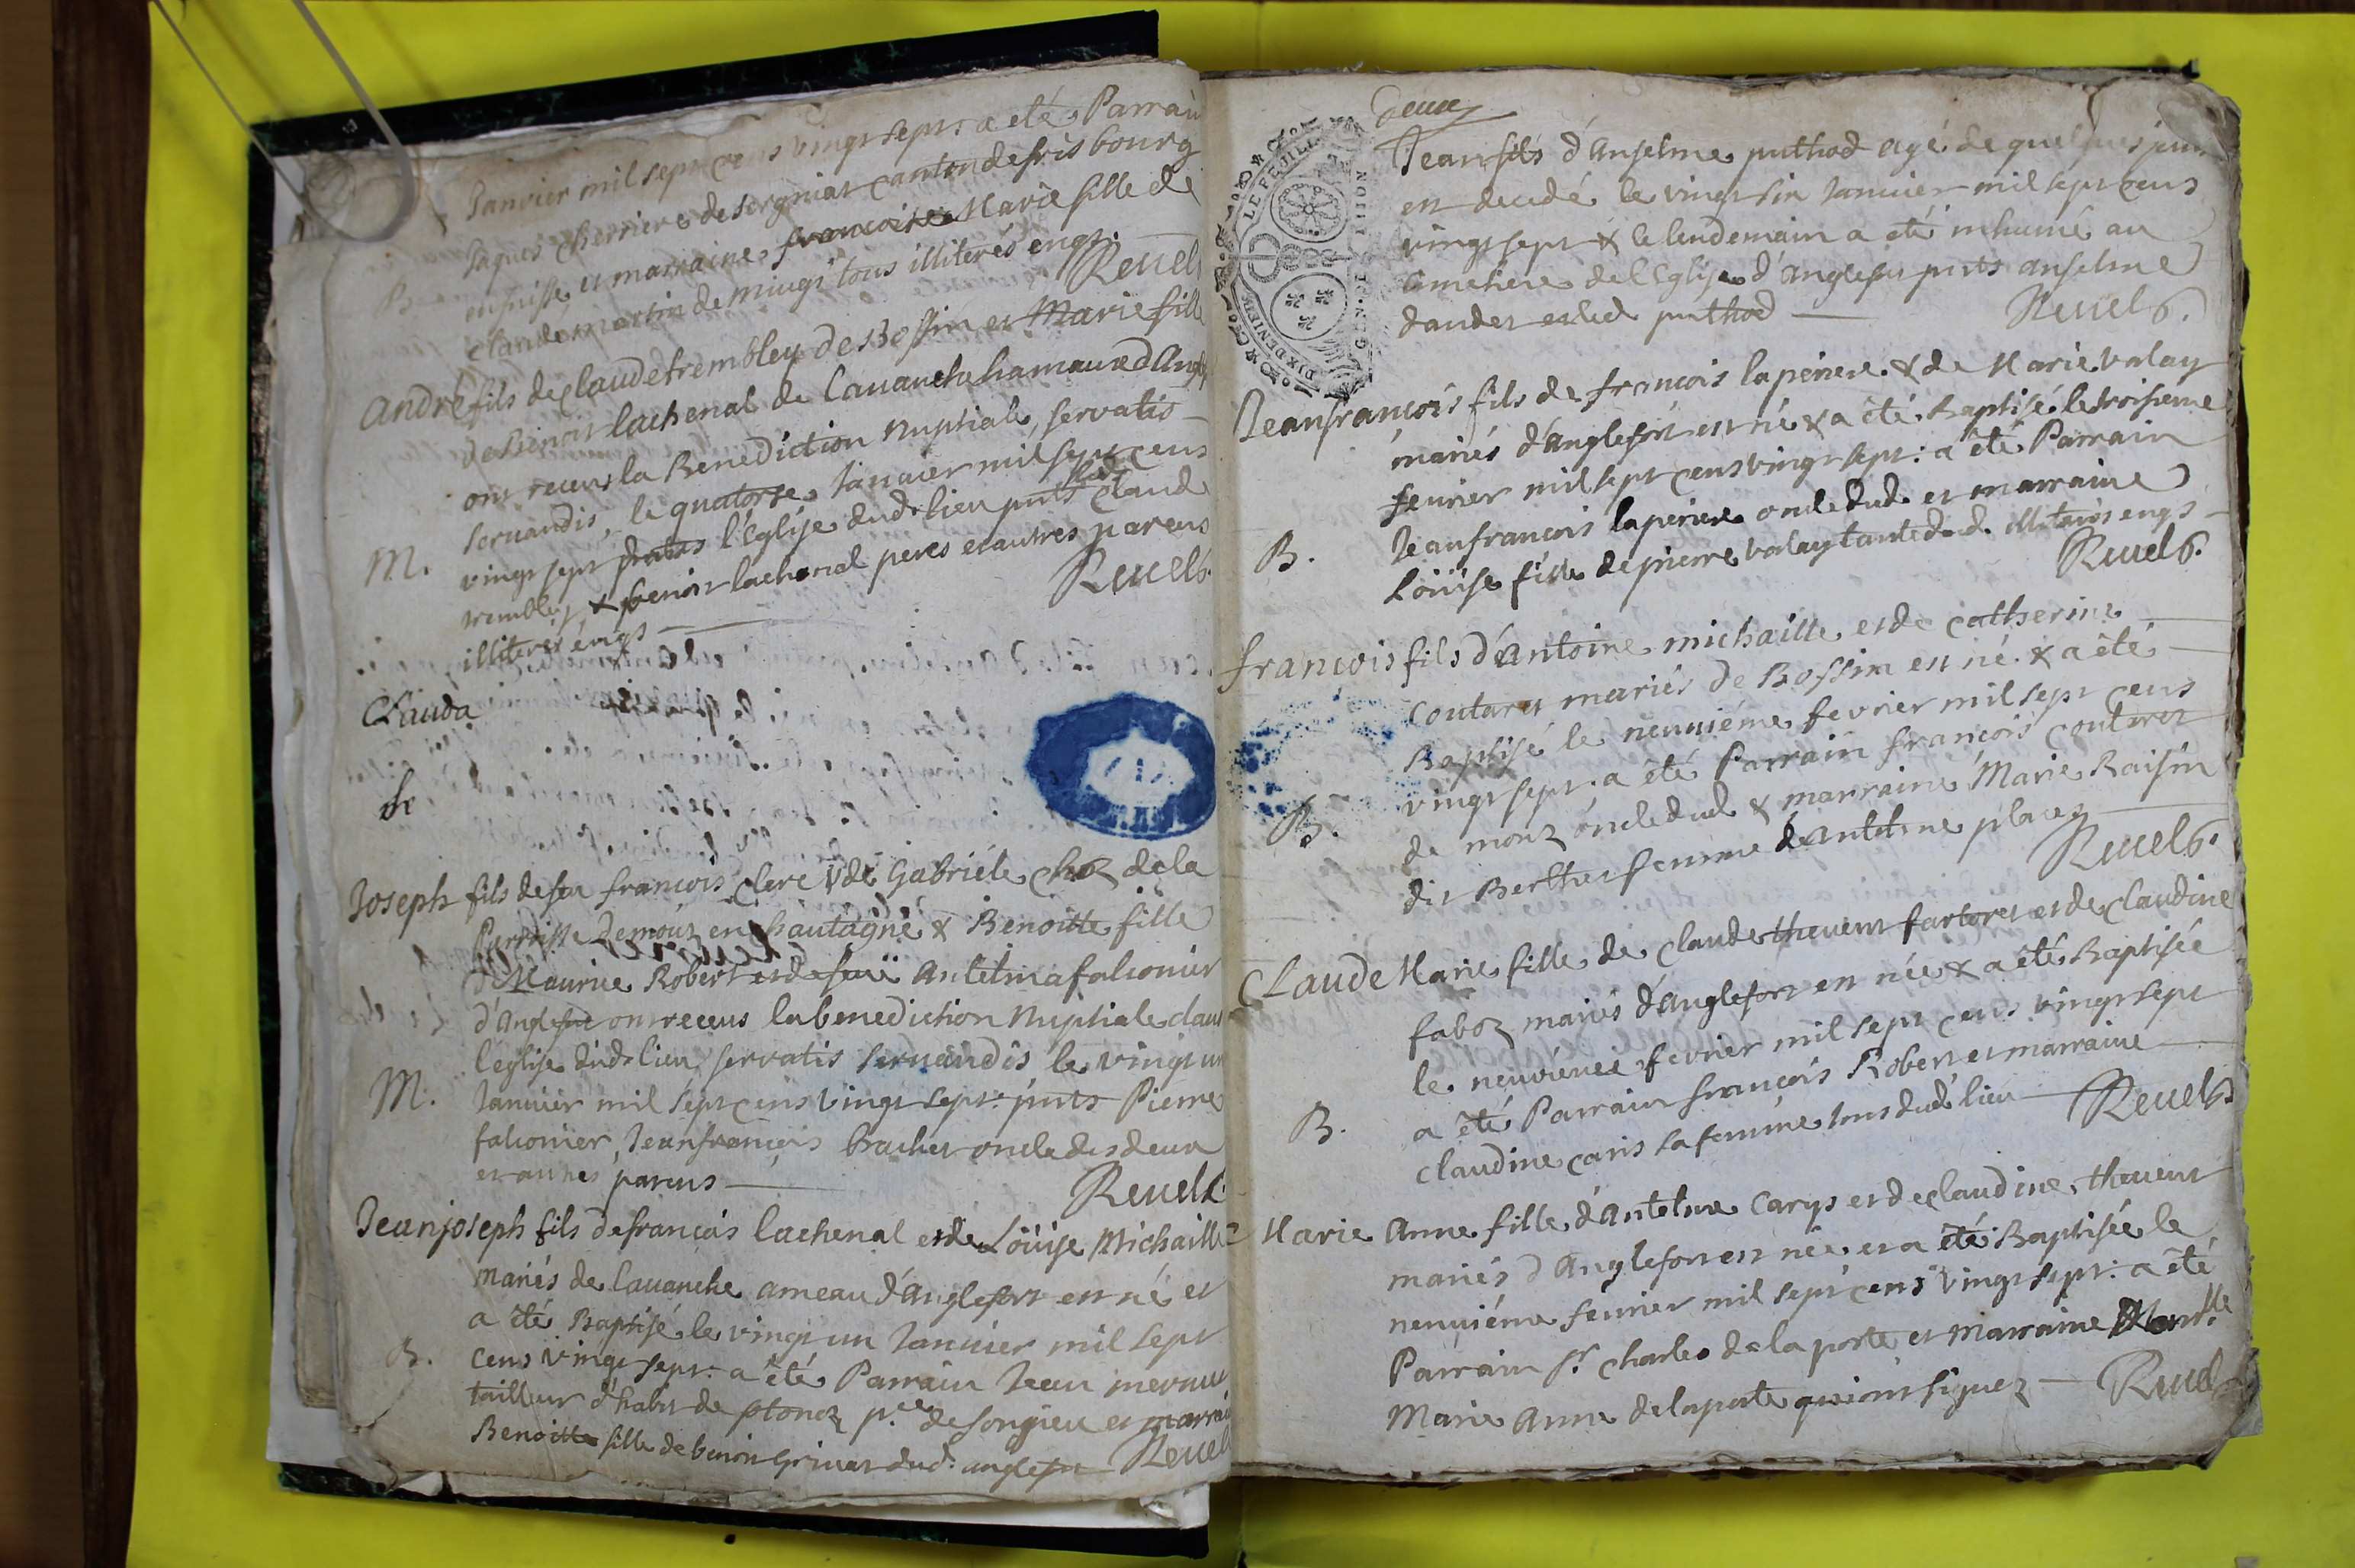 Janvier mil sept cens vingt sept: a eté Parrain
Jaques cherriere de sorgniat canton de frisbourg
B
en suisse et marraine francoise Marie fille de
claude martin de mings tous illiterés engs.
Reuel
André fils de claude trembley de Bossin et Marie fille
de Benoit lachenal de Lauanche hamaux d'Angle
ont receus la Benediction nuptiale, servatis
servandis, le quatorse Janvier mil sept cens
M.
vingt sept dans l'Eglise dud. lieu pnts led. Claude
trembley, & benoit lachenal peres et autres parens
illiterés engs
Reuel
Clauda
de
Joseph fils de feu francois Clerc & de Gabriele choz de la
Parroisse de mouz en chautagne & Benoitte fille
de Maurice Robert et de feuë Antelma falconier
d'Anglefort ont receus la benediction Nuptiale dans
l'église dud. lieu, servatis servandis le vingt un
M.
Janvier mil sept cens vingt sept: pnts Pierre
falconier, Jeanfrancois brachet oncle des deux
et autres parens
Reuel
Jeanjoseph fils de francois lachenal et de Loüise Michaille
mariés de Lauanche ameau d'Anglefort est né et
a été Baptisé le vingt un Janvier mil sept
B.
cens vingt sept: a été Parrain Jean
tailleur d'habit de ptonoz p.sse de songieu et marrai
Benoitte fille de benoit Grinet dud. anglefort
Reuel
Deux
LE FEUILLE
DIX DENIERS
GEN. DE DIION
Jean fils d'Anselme puthod agé de quelques jours
est decedé le vingt six Janvier mil sept cens
vingt sept & le lendemain a été inhumé au
Cimetiere de l'Eglise d'Anglefort pnts anselme
dandet et led. puthod
Reuel
Jeanfrancois fils de francois laperiere & de Marie Valay
mariés d'Anglefort est né & a été Baptisé le troisieme
fevrier mil sept cens vingt sept: a été Parrain
B.
Jeanfrancois laperiere oncle dud. et marraine
Loüise fille de pierre Valay tante dud. illiterés engs
Reuel
francois fils d'Antoine michaille et de catherine
Coutaret mariés de Bossin est né & a été
Baptisé le neuviéme fevrier mil sept cens
vingt sept: a été Parrain francois Coutaret
B.
de mouz oncle dud. & marraine Marie Raisin
dit Berthet femme d'Antelme placez
Reuel
Claude Marie fille de Claude thevent fartoret et de Claudine
faboz mariés d'Anglefort est née & a été Baptisée
le neuviéme fevrier mil sept cens vingt sept
B.
a été Parrain francois Robert et marraine
Claudine caris sa femme tous dud. lieu
Reuel
Marie Anne fille d'Antelme Carys et de Claudine thevent
mariés d'Anglefort est née et a été Baptisée le
neuviéme fevrier mil sept cens vingt sept: a été
Parrain Sr. Charles de la porte et marraine
Marie Anne de la porte qui ont signez
Reuel